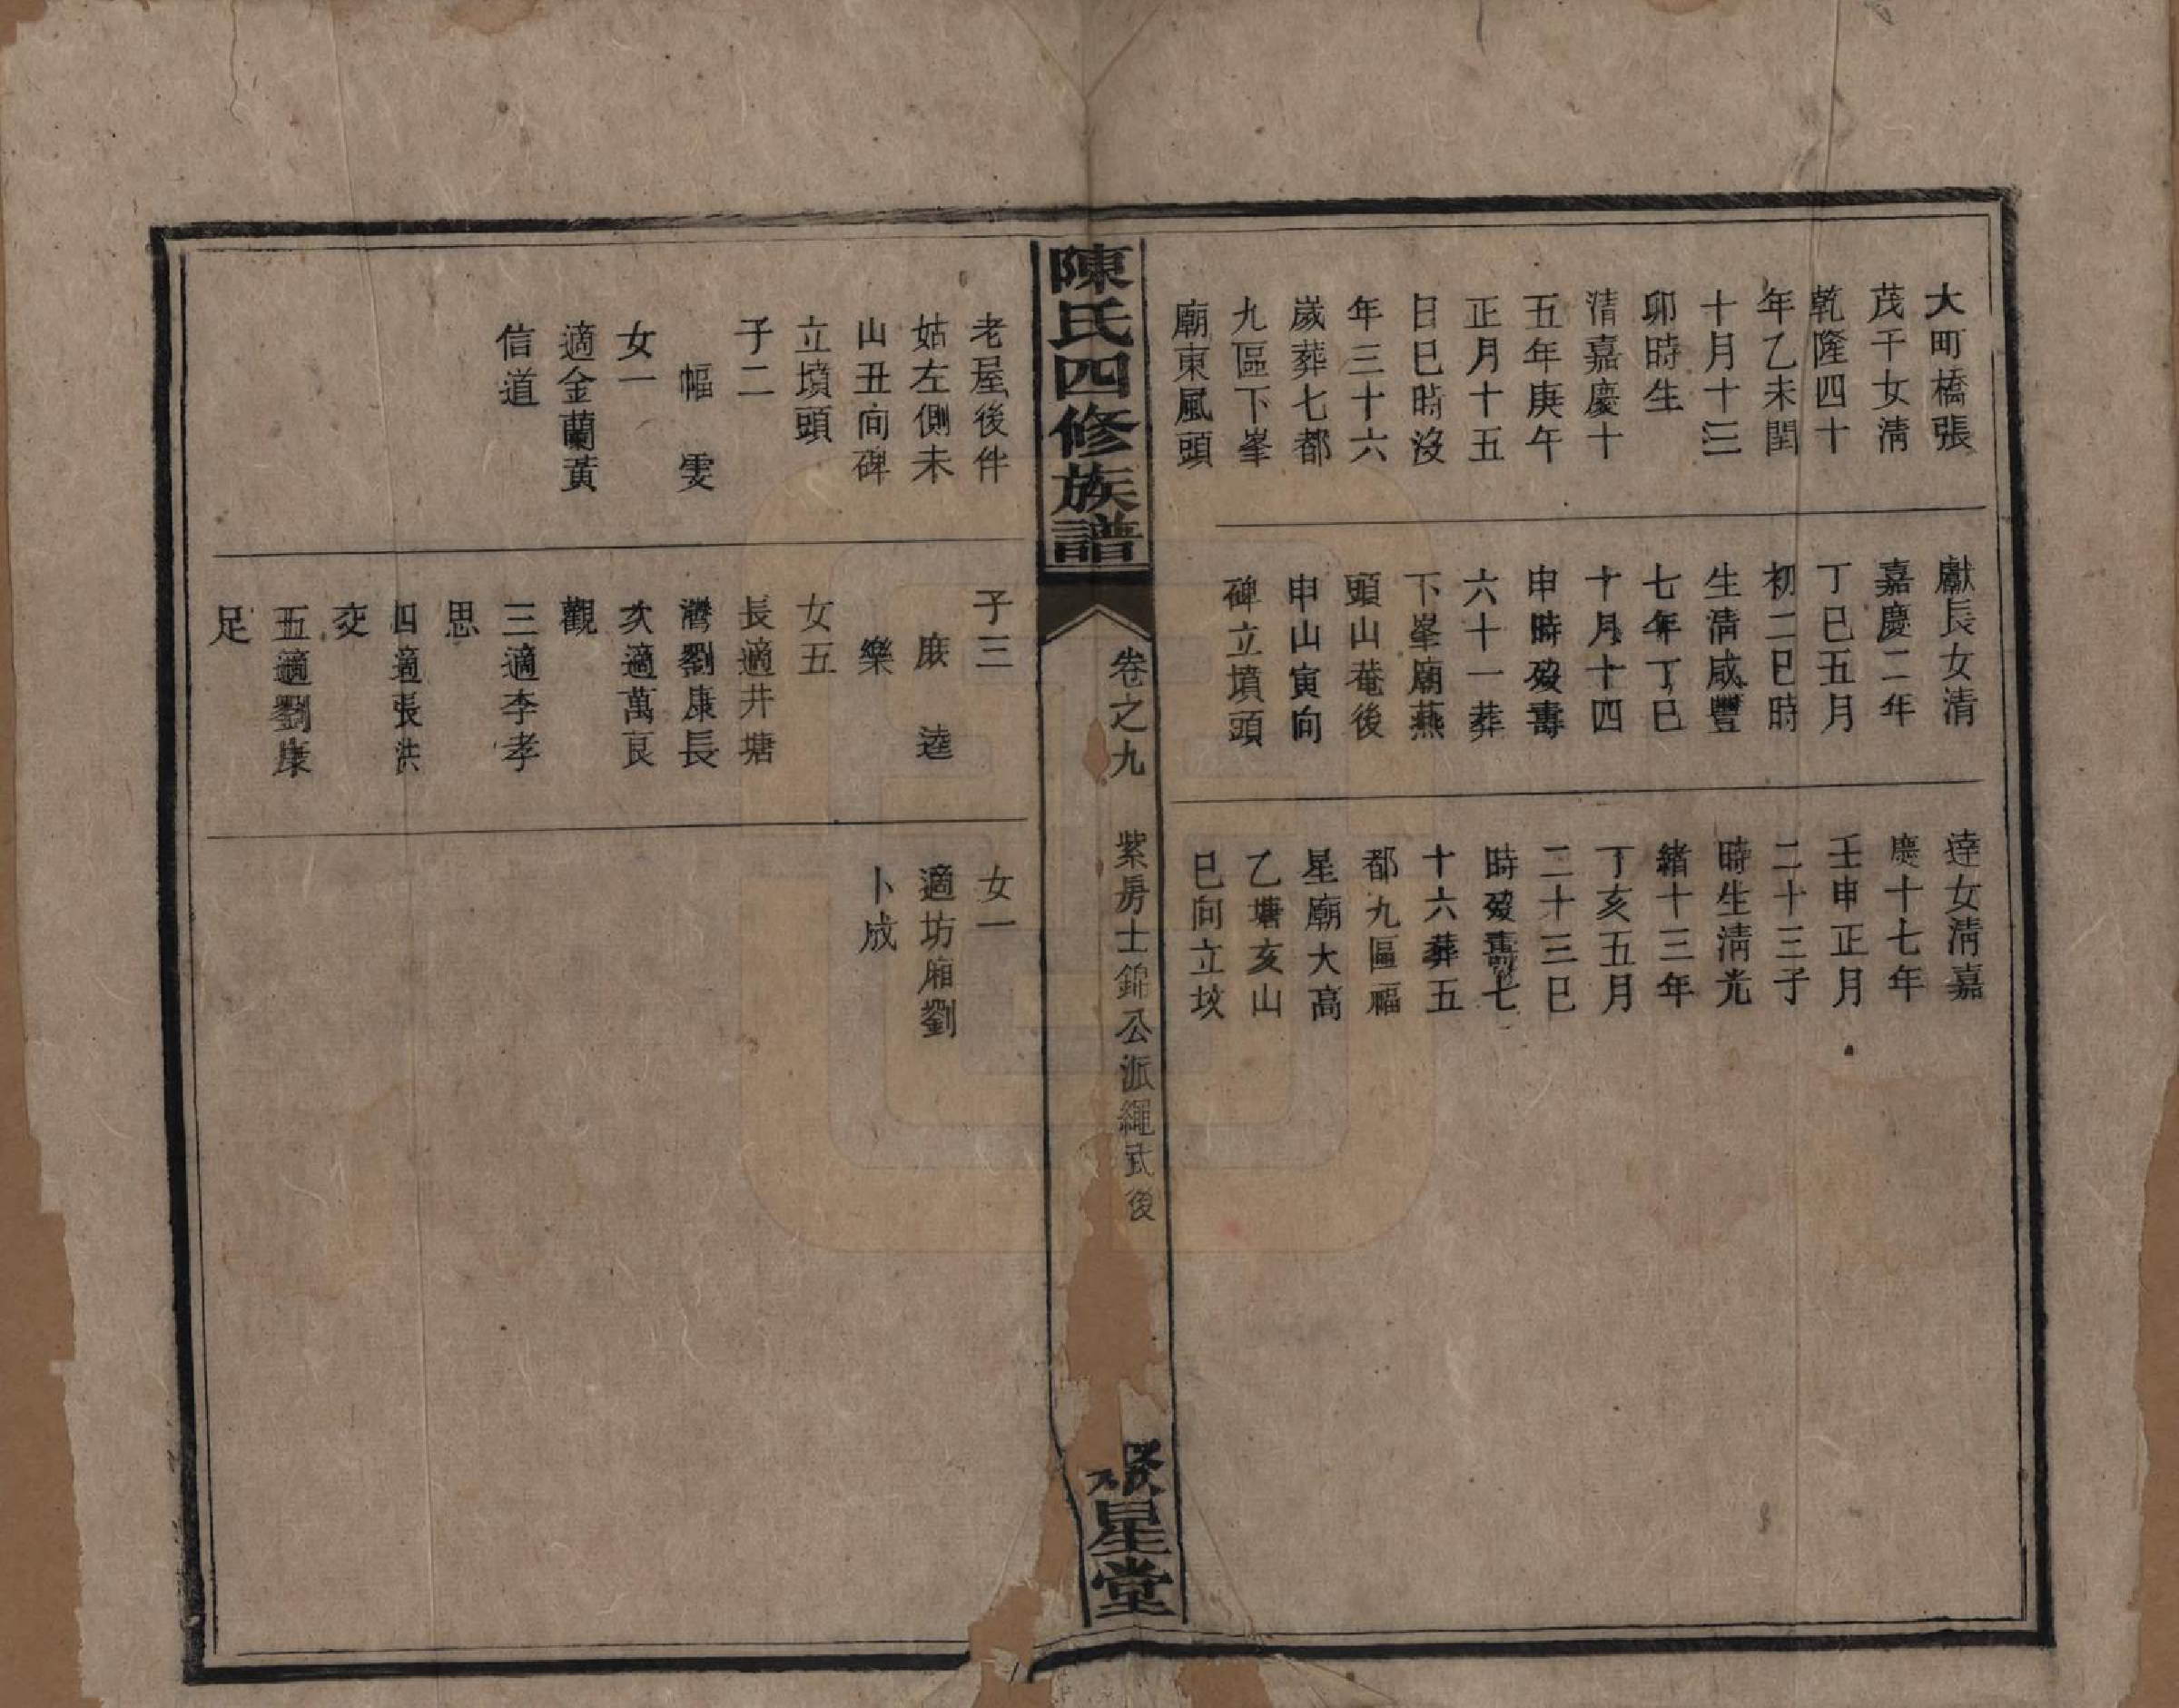 大町橋張
茂干女清
乾隆四十
年乙未閏
十月十三
卯時生
清嘉慶十
五年庚午
正月十五
日巳時沒
年三十六
歲葬七都
九區下峯
廟東風頭
獻長女清
嘉慶二年
丁巳五月
初二巳時
生清咸豐
七年丁巳
十月十四
申時歿壽
六十一葬
下峯廟燕
頭山菴後
申山寅向
碑立墳頭
達女清嘉
慶十七年
壬申正月
二十三子
時生清光
緒十三年
丁亥五月
二十三巳
時歿壽七
十六葬五
都九區福
星廟大高
乙塘亥山
巳向立坟
陳氏四修族譜
卷之九
紫房士錦公派繩武後
聚星堂
老屋後仵
姑左側未
山丑向碑
立墳頭
子二
幅 雯
女一
適金蘭黃
信道
子三
庥 逵
樂
女五
長適井塘
灣劉康長
次適萬良
觀
三適李孝
思
四適張洪
交
五適劉康
足
女一
適坊廂劉
卜成